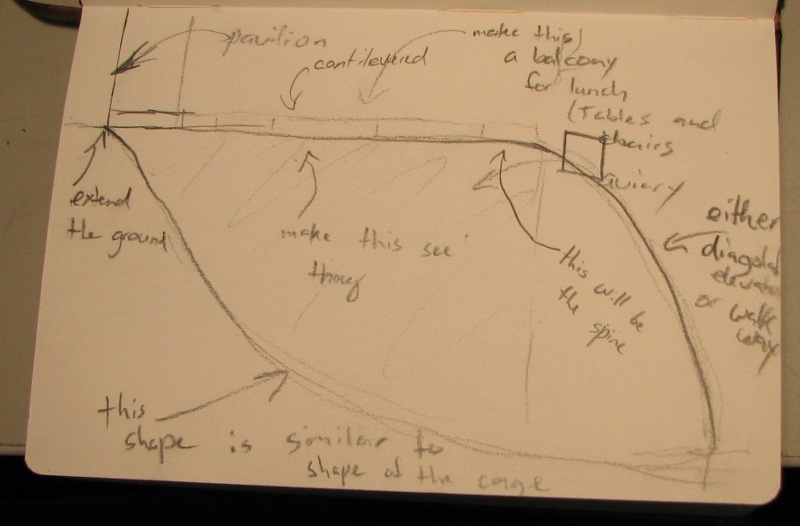 pavilion
cantilevered
make this
a balcony
for lunch
(Tables and
chairs
aviary
extend
the ground
make this see
thoug
this will be
the spine
either
diagonal
elevator
or walk
way
this
shape is similar to
shape of the